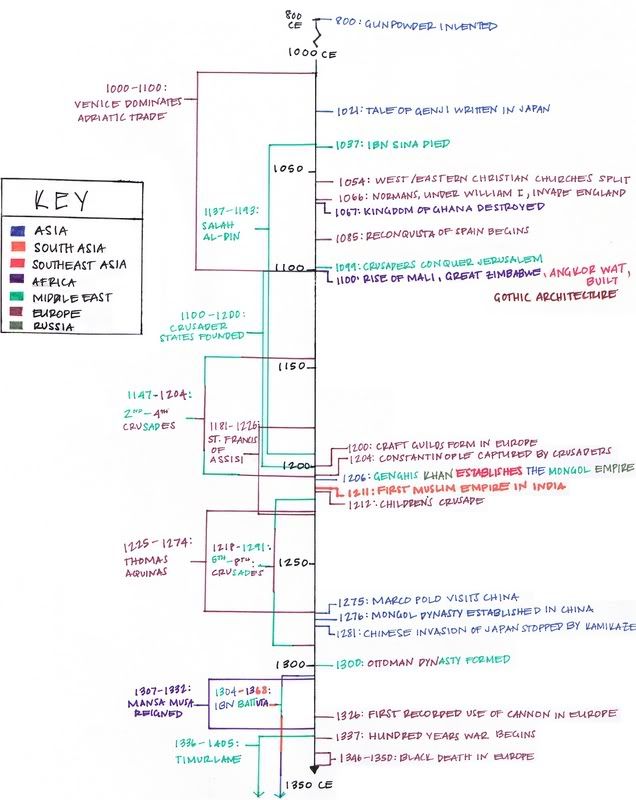 800 CE
800: GUNPOWDER INVENTED
1000 CE
1000-1100:
VENICE DOMINATES
ADRIATIC TRADE
1021: TALE OF GENJI WRITTEN IN JAPAN
1037: IBN SINA DIED
1050
1054: WEST/EASTERN CHRISTIAN CHURCHES SPLIT
1066: NORMANS, UNDER WILLIAM I, INVADE ENGLAND
1067: KINGDOM OF GHANA DESTROYED
1085: RECONQUISTA OF SPAIN BEGINS
KEY
ASIA
SOUTH ASIA
SOUTHEAST ASIA
AFRICA
MIDDLE EAST
EUROPE
RUSSIA
1137-1193:
SALAH
AL-DIN
1099: CRUSADERS CONQUER JERUSALEM
1100
1100: RISE OF MALI, GREAT ZIMBABWE, ANGKOR WAT,
BUILT
GOTHIC ARCHITECTURE
1100-1200:
CRUSADER
STATES FOUNDED
1150
1147-1204:
2ND-4TH
CRUSADES
1181-1226:
ST. FRANCIS
OF
ASSISI
1200: CRAFT GUILDS FORM IN EUROPE
1204: CONSTANTINOPLE CAPTURED BY CRUSADERS
1200
1206: GENGHIS KHAN ESTABLISHES THE MONGOL EMPIRE
1211: FIRST MUSLIM EMPIRE IN INDIA
1212: CHILDREN'S CRUSADE
1225-1274:
THOMAS
AQUINAS
1218-1291:
5TH-8TH
CRUSADES
1250
1275: MARCO POLO VISITS CHINA
1276: MONGOL DYNASTY ESTABLISHED IN CHINA
1281: CHINESE INVASION OF JAPAN STOPPED BY KAMIKAZE
1300
1300: OTTOMAN DYNASTY FORMED
1307-1332:
MANSA MUSA
REIGNED
1304-1368:
IBN BATTUTA
1326: FIRST RECORDED USE OF CANNON IN EUROPE
1337: HUNDRED YEARS WAR BEGINS
1336-1405:
TIMURLANE
1346-1350: BLACK DEATH IN EUROPE
1350 CE